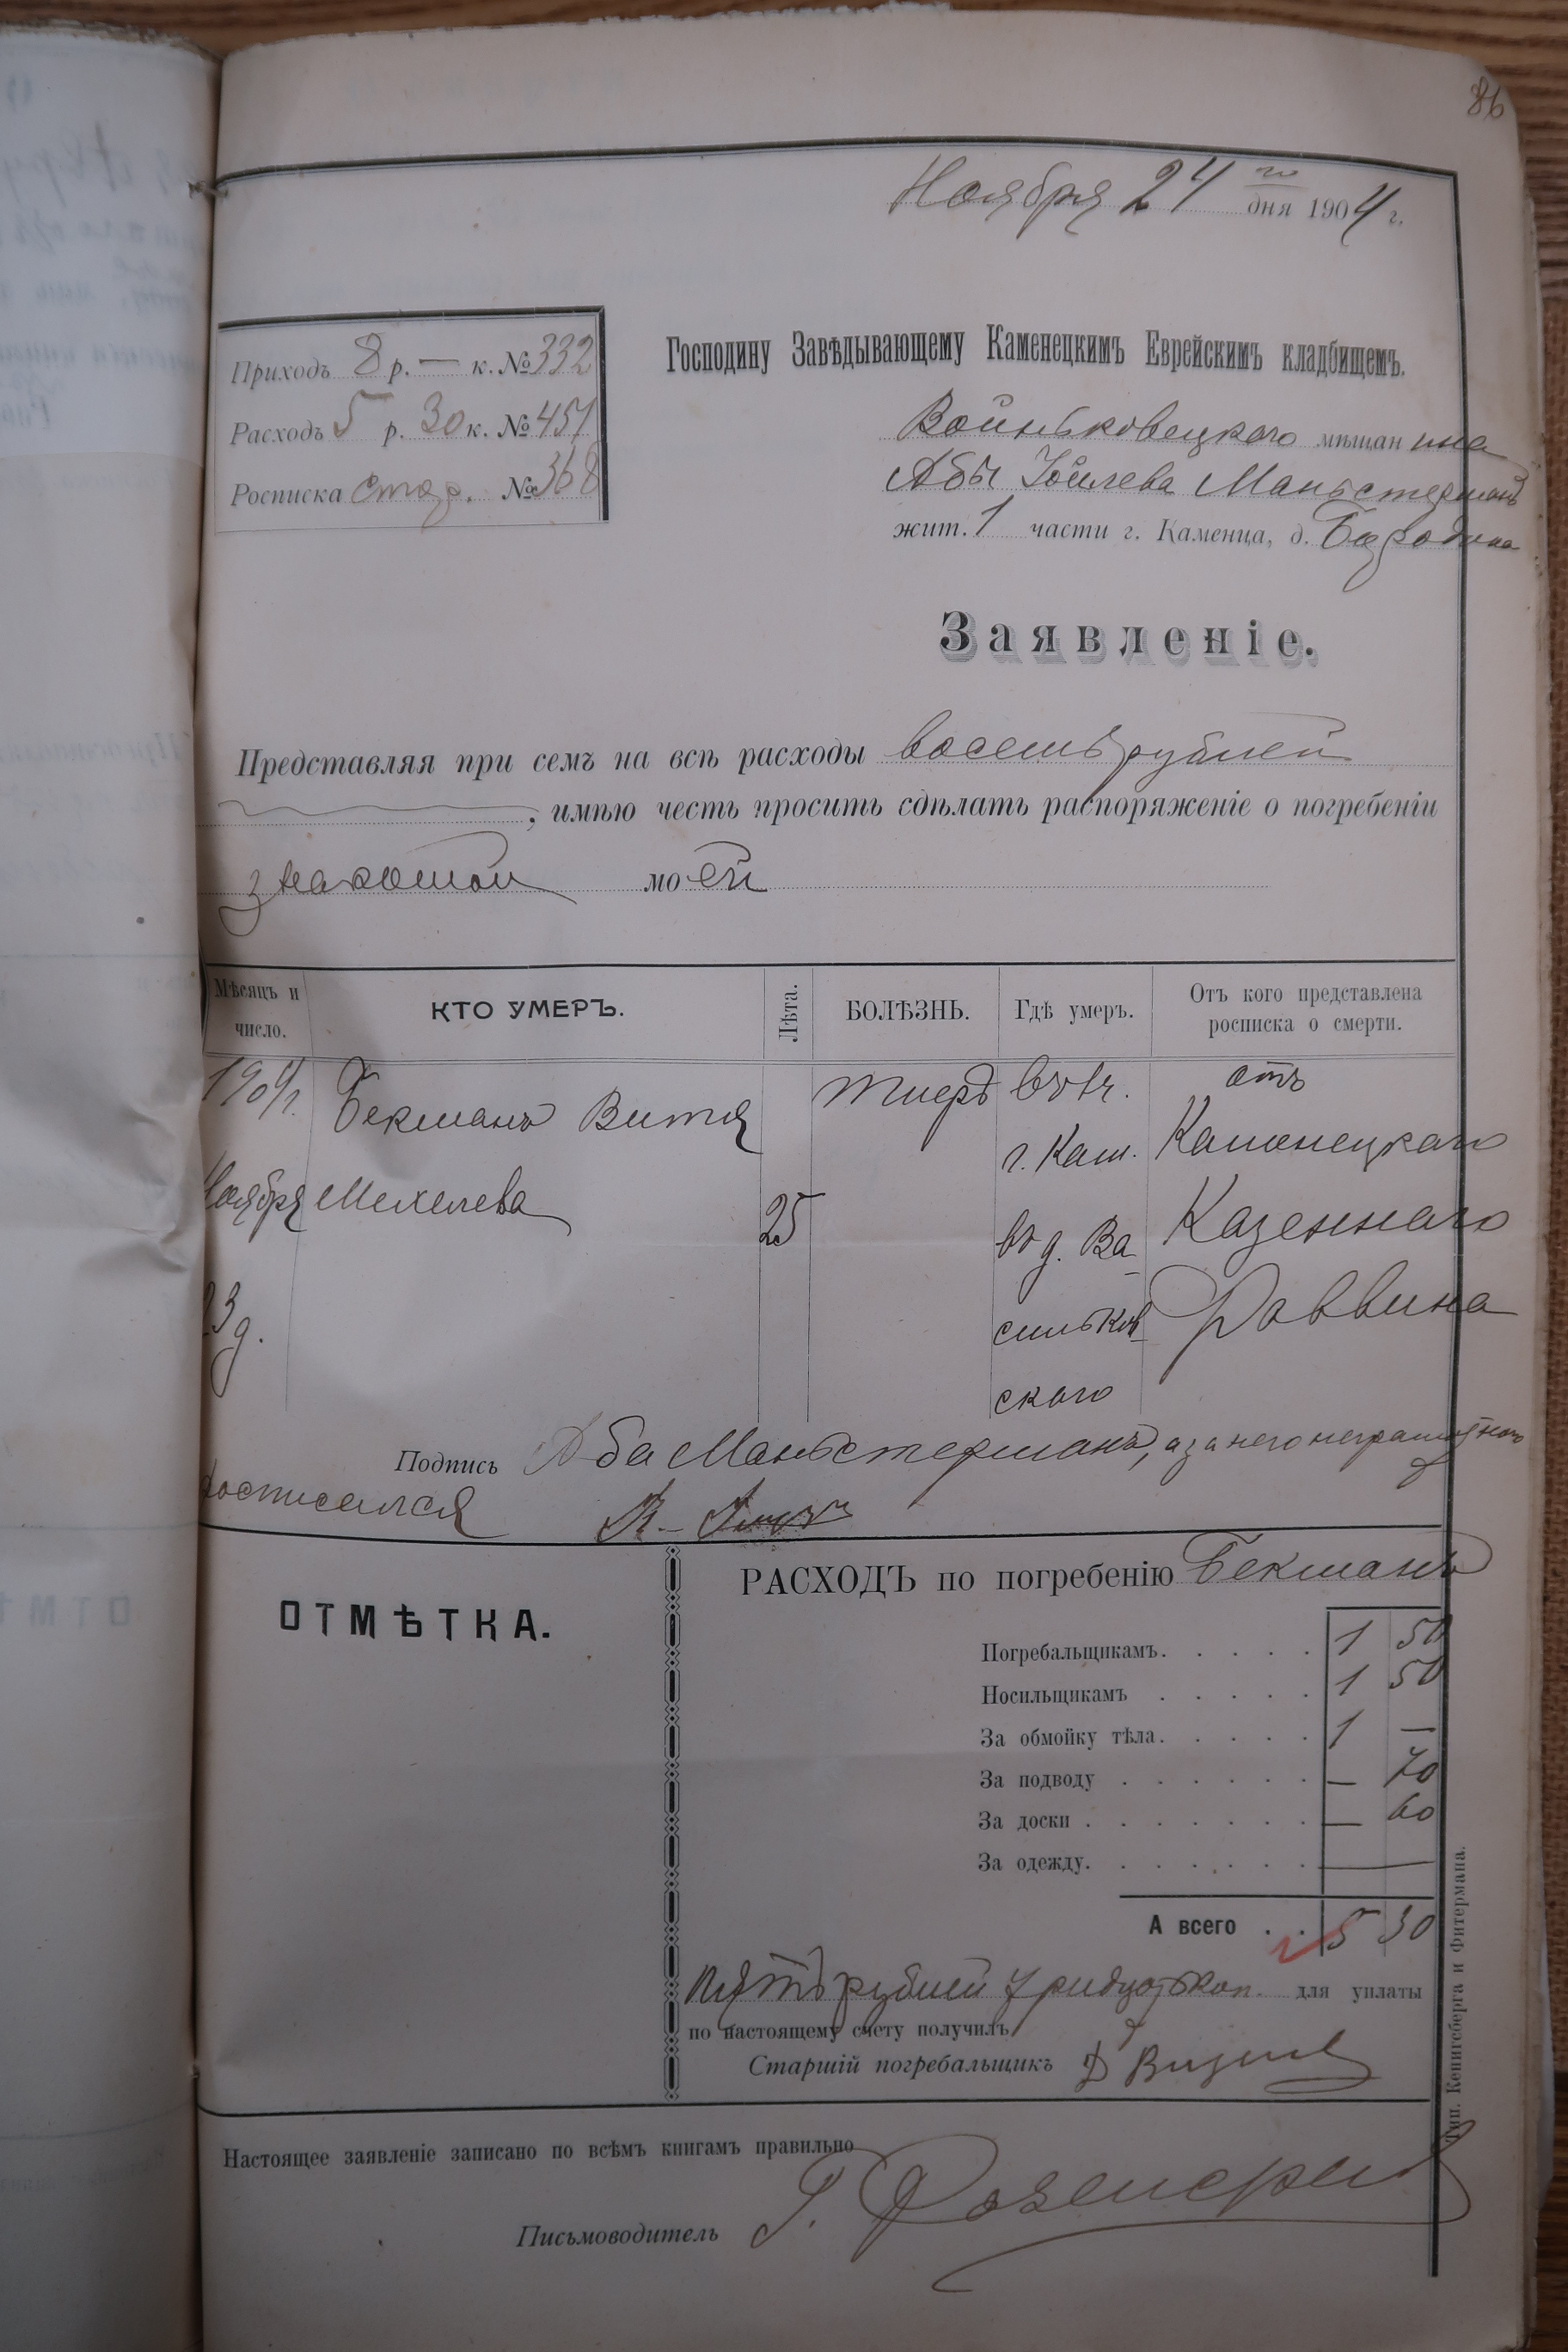 86
Ноября 24 го дня 1904 г.
Приходъ 8 р. — к. № 332
Расходъ 5 р. 30 к. № 451
Росписка стар. № 368
Господину Завѣдывающему Каменецкимъ Еврейскимъ кладбищемъ.
Войньковецкого мѣщанина
Абы Іойлева Маньстерманъ
жит. 1 части г. Каменца, д. Бородина
Заявленіе.
Представляя при семъ на всѣ расходы восемь рублей
, имѣю честь просить сдѣлать распоряженіе о погребеніи
знакомой моей
Мѣсяцъ и число. КТО УМЕРЪ. Лѣта. БОЛѢЗНЬ. Гдѣ умеръ. Отъ кого представлена росписка о смерти.
1904 г. Бекманъ Витя въ 1 ч. отъ
г. Кам. Каменецкаго
Ноября Мехелева 25 въ д. Ва- Казеннаго
23 д. сильков- Раввина
ского
Подпись Аба Маньстерманъ, а за него неграмотного
росписался
ОТМѢТКА.
РАСХОДЪ по погребенію Бекманъ
Погребальщикамъ. 1 50
Носильщикамъ 1 50
За обмойку тѣла. 1 —
За подводу — 70
За доски — 60
За одежду. —
А всего 5 30
Пять рублей тридцать коп. для уплаты
по настоящему счету получилъ
Старшій погребальщикъ
Настоящее заявленіе записано по всѣмъ книгамъ правильно
Письмоводитель
Тип. Кенигсберга и Фитермана.